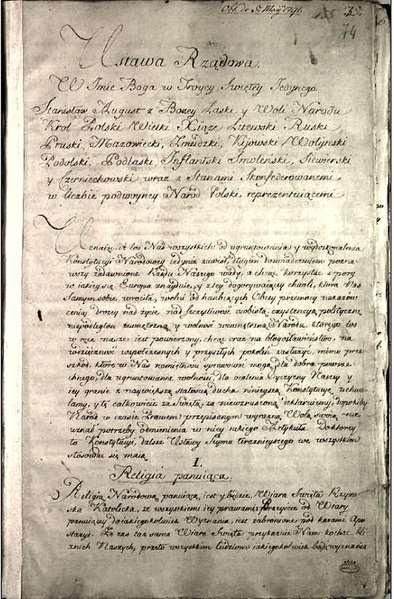 Ustawa Rządowa.
W Imie Boga w Troycy Swiętey Jedynego.
Stanisław August z Bozey Łaski y Woli Narodu
Krol Polski Wielki Xiąze Litewski Ruski
Pruski, Mazowiecki, Zmudzki, Kijowski Wołynski
Podolski, Podlaski Inflantski Smolenski, Siewierski
y Czerniechowski, wraz z Stanami Skonfederowanemi
w liczbie podwoyney Narod Polski reprezentuiącemi.
Uznaiąc, iż los Nas wszystkich od ugruntowania y wydoskonalenia
Konstytucyi Narodowey iedynie zawisł, długim doswiadczeniem pozna-
wszy zadawnione Rządu Naszego wady, a chcąc korzystac z pory
w iakiey się Europa znayduie, y z tey dogorywaiącey chwili, ktora Nas
Samym sobie wrociła, wolni od hanbiących Obcey przemocy nakazow
ceniąc drozey nad życie, nad szczęsliwosc osobistą, exystencyą polityczną
niepodległosc zewnętrzną y wolnosc wewnętrzną Narodu, ktorego los
w ręce nasze iest powierzony, chcąc oraz na błogosławienstwo, na
wdzięcznosc wspołczesnych y przyszłych pokolen zasłużyc, mimo prze-
szkod, ktore w Nas namiętnosci sprawowac mogą, dla dobra powsze-
chnego, dla ugruntowania wolnosci, dla ocalenia Oyczyzny Naszey y
iey granic z naywiększą stałoscią ducha ninieyszą Konstytucyę uchwa-
lamy, y tę całkowicie za swiętą, za niewzruszoną deklaruiemy, dopokiby
Narod w czasie Prawem przepisanym wyrazną Wolą swoią nie
uznał potrzeby odmienienia w niey iakiego Artykułu. Do ktorey
to Konstytucyi, dalsze Ustawy Seymu teraznieyszego we wszystkim
stosowac się maią.
I.
Religia panuiąca.
Religią Narodową panuiącą, iest y będzie Wiara Swięta Rzym-
ska Katolicka, ze wszystkiemi iey prawami. Przeyscie od Wiary
panuiącey do iakiegokolwiek Wyznania, iest zabronione pod karami Apo-
stazyi. Że zas taż sama Wiara Swięta przykazuie Nam kochac bli-
znich Naszych, przeto wszystkim ludziom iakiegokolwiek bądz wyznania